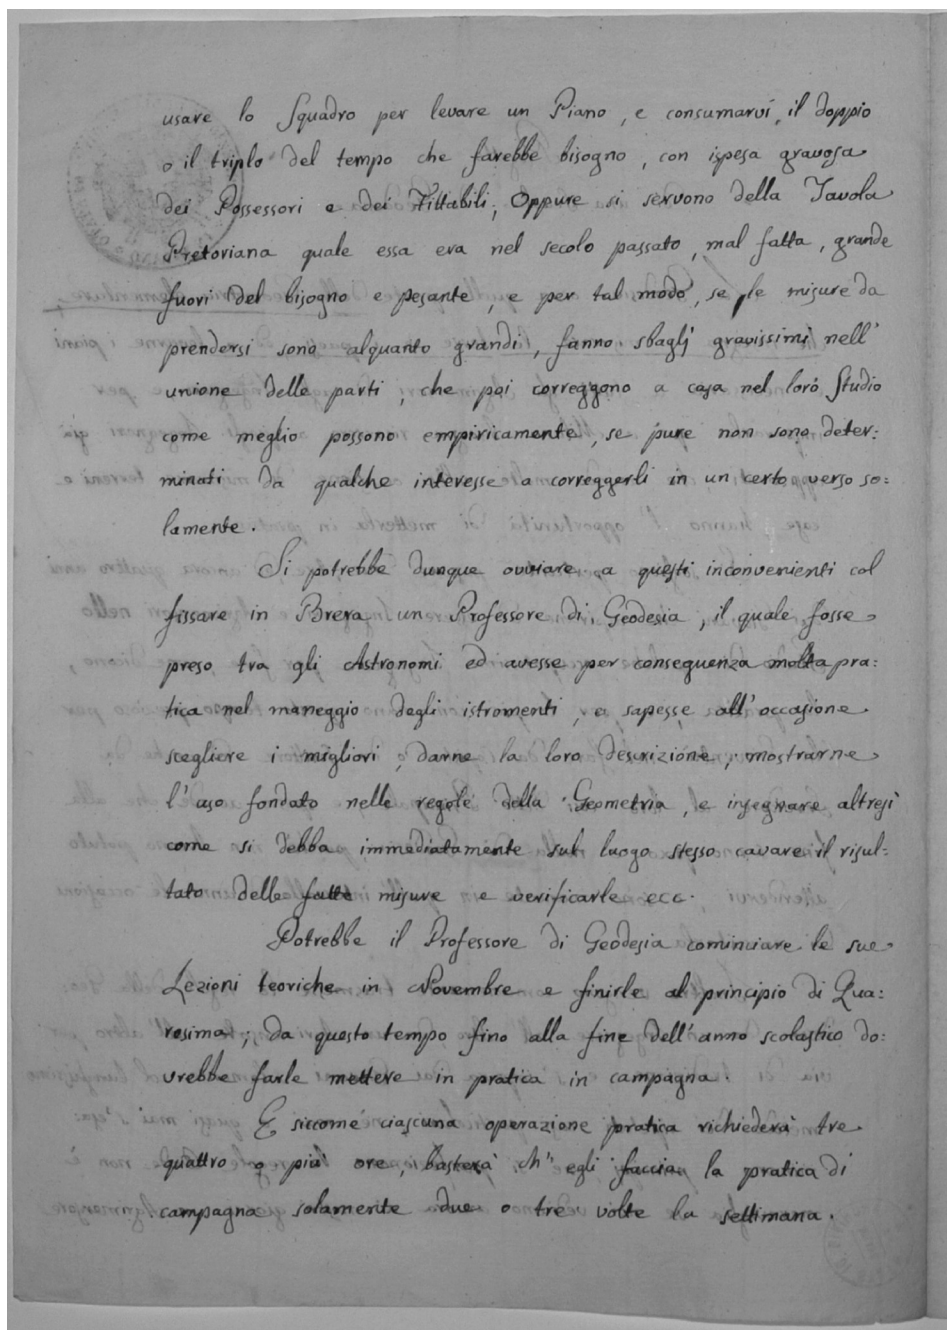 usare lo Squadro per levare un Piano, e consumarvi, il doppio
o il triplo del tempo che farebbe bisogno, con ispesa gravosa
dei Possessori e dei Fittabili; Oppure si servono della Tavola
Pretoriana quale essa era nel secolo passato, mal fatta, grande
fuori del bisogno e pesante, e per tal modo, se le misure da
prendersi sono alquanto grandi, fanno sbaglj gravissimi nell'
unione delle parti, che poi correggono a casa nel loro Studio
come meglio possono empiricamente, se pure non sono deter:
minati da qualche interesse a correggerli in un certo verso so:
lamente.
Si potrebbe dunque ovviare a questi inconvenienti col
fissare in Brera un Professore di Geodesia, il quale fosse
preso tra gli Astronomi ed avesse per conseguenza molta pra:
tica nel maneggio degli istromenti, e sapesse all'occasione
scegliere i migliori, darne la loro descrizione, mostrarne
l'uso fondato nelle regole della Geometria, e insegnare altresì
come si debba immediatamente sul luogo stesso cavare il risul:
tato delle fatte misure e verificarle ecc.
Potrebbe il Professore di Geodesia cominciare le sue
Lezioni teoriche in Novembre e finirle al principio di Qua:
resima; da questo tempo fino alla fine dell'anno scolastico do:
vrebbe farle mettere in pratica in campagna.
E siccome ciascuna operazione pratica richiederà tre
quattro o più ore, basterà ch'egli faccia la pratica di
campagna solamente due o tre volte la settimana.